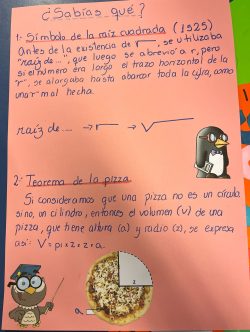 ¿Sabías qué?
1- Símbolo de la raíz cuadrada (1525)
Antes de la existencia de r‾, se utilizaba
"raíz de...", que luego se abrevió a r, pero
si el número era largo el trazo horizontal de la
"r", se alargaba hasta abarcar toda la cifra, como
una r mal hecha.
raíz de... → r → √
2- Teorema de la pizza
Si consideramos que una pizza no es un círculo
sino, un cilindro, entonces el volumen (v) de una
pizza, que tiene altura (a) y radio (z), se expresa
así: V = pi x z x z x a.
z
a